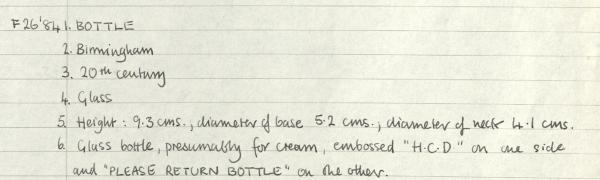 F26'84 1. BOTTLE
2. Birmingham
3. 20th century
4. Glass
5. Height : 9.3 cms., diameter of base 5.2 cms., diameter of neck 4.1 cms.
6. Glass bottle, presumably for cream, embossed "H.C.D" on one side
and "PLEASE RETURN BOTTLE" on the other.